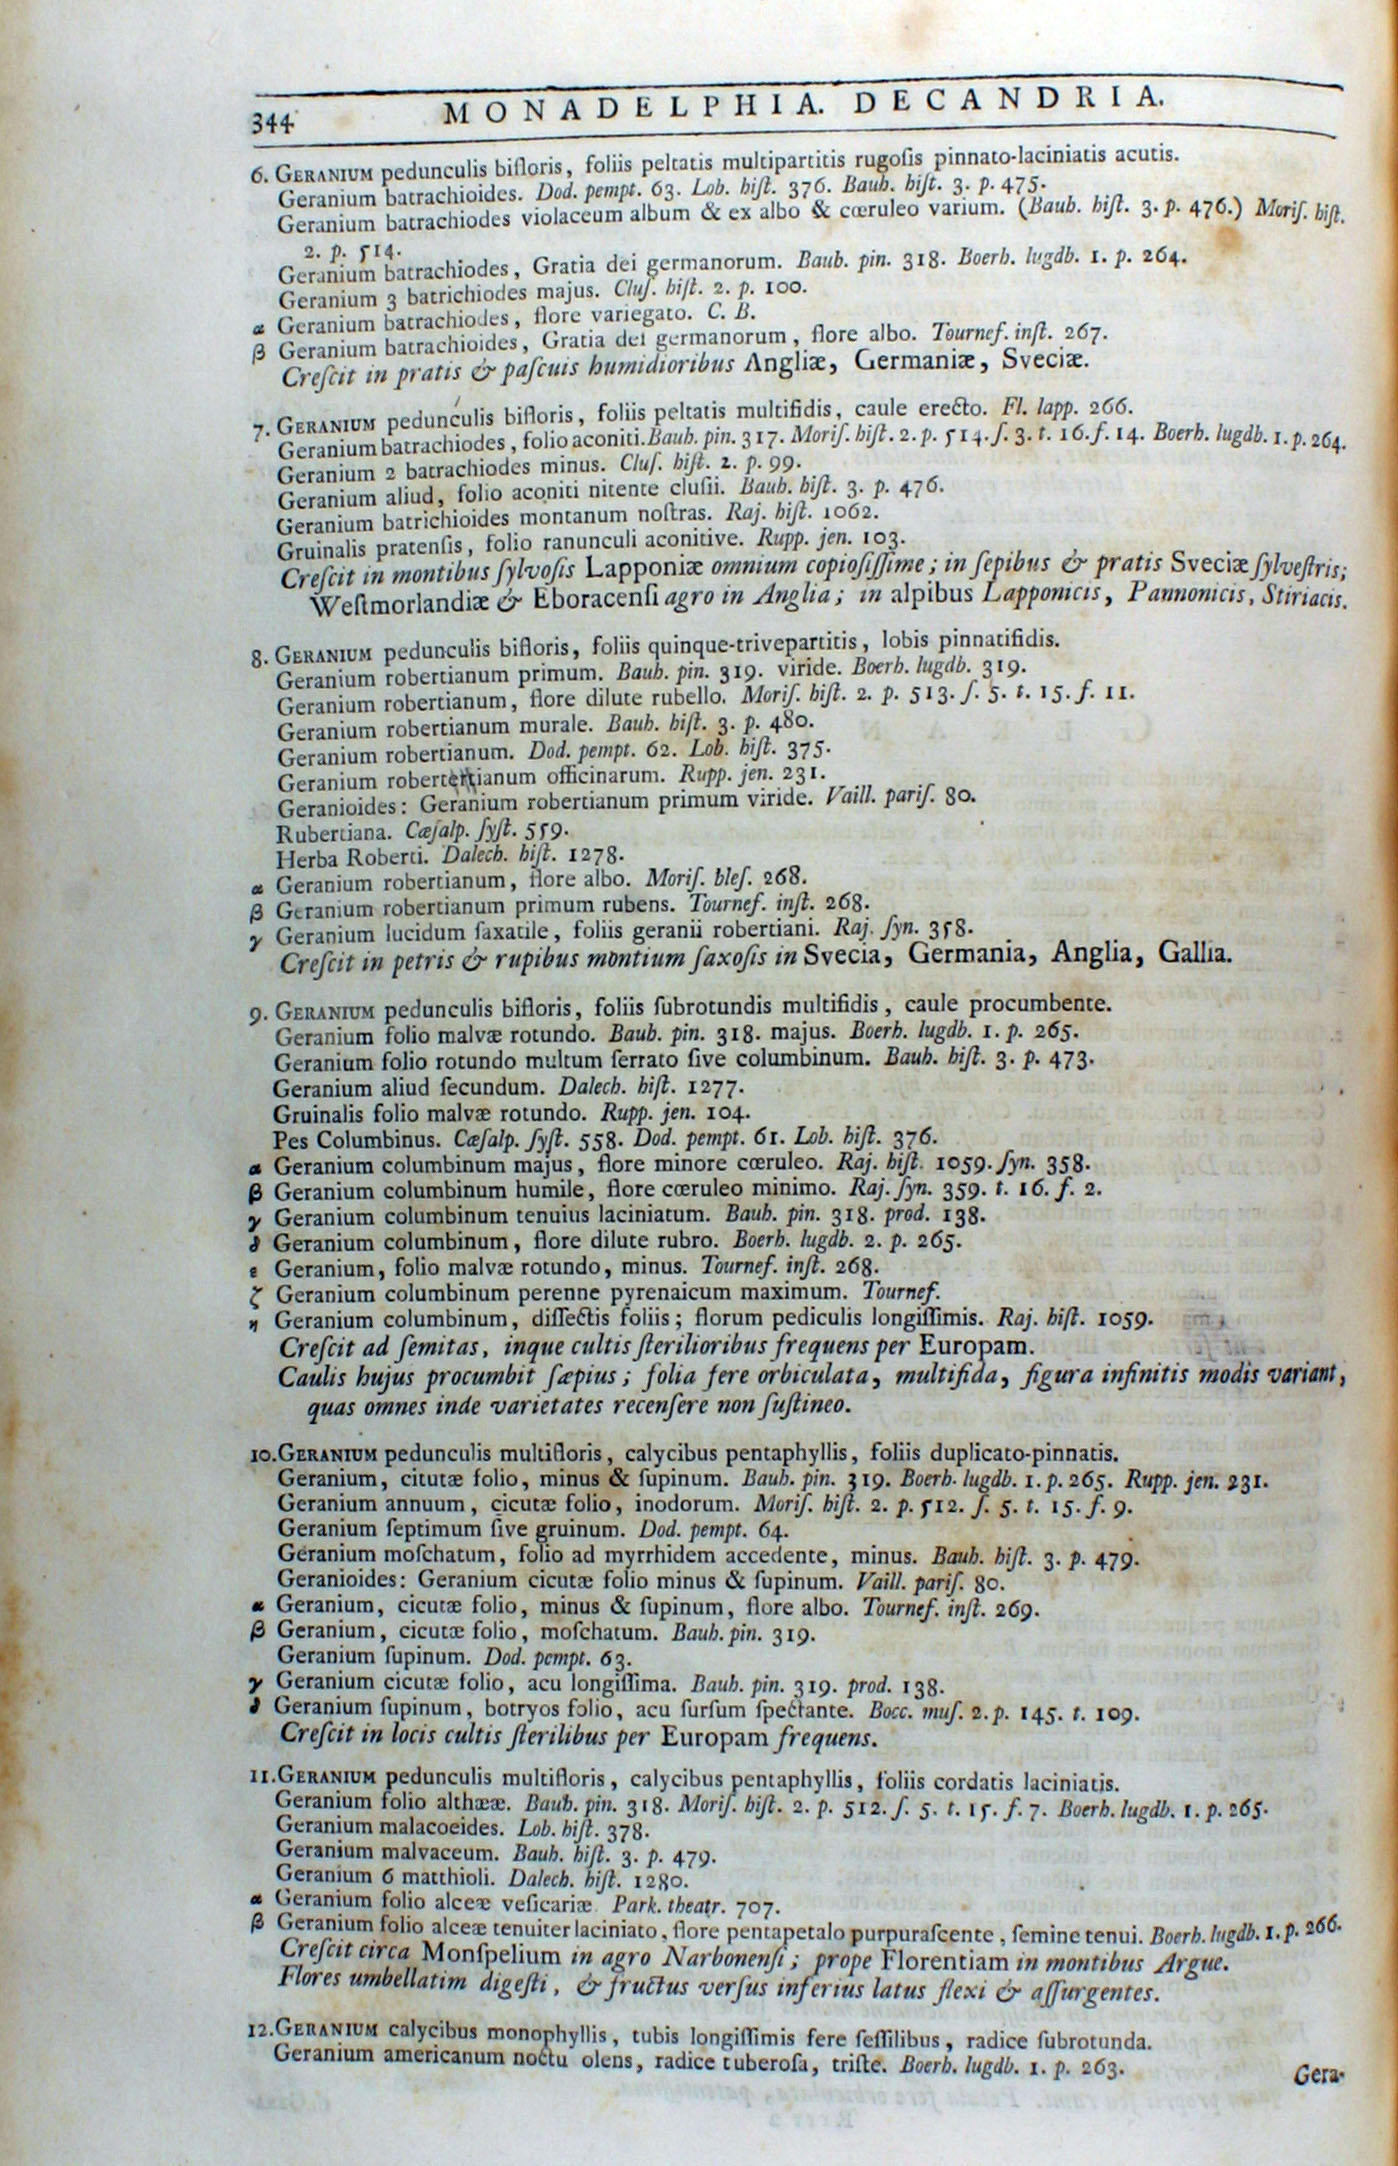 344 MONADELPHIA. DECANDRIA.
6. GERANIUM pedunculis bifloris, foliis peltatis multipartitis rugoſis pinnato-laciniatis acutis.
Geranium batrachioides. Dod. pempt. 63. Lob. hiſt. 376. Bauh. hiſt. 3. p. 475.
Geranium batrachiodes violaceum album & ex albo & cœruleo varium. (Bauh. hiſt. 3. p. 476.) Moriſ. hiſt.
2. p. 514.
Geranium batrachiodes, Gratia dei germanorum. Bauh. pin. 318. Boerh. lugdb. 1. p. 264.
Geranium 3 batrichiodes majus. Cluſ. hiſt. 2. p. 100.
α Geranium batrachiodes, flore variegato. C. B.
β Geranium batrachioides, Gratia dei germanorum, flore albo. Tournef. inſt. 267.
Creſcit in pratis & paſcuis humidioribus Angliæ, Germaniæ, Sveciæ.
7. GERANIUM pedunculis bifloris, foliis peltatis multifidis, caule erecto. Fl. lapp. 266.
Geranium batrachiodes, folio aconiti. Bauh. pin. 317. Moriſ. hiſt. 2. p. 514. ſ. 3. t. 16. f. 14. Boerh. lugdb. 1. p. 264.
Geranium 2 batrachiodes minus. Cluſ. hiſt. 2. p. 99.
Geranium aliud, folio aconiti nitente cluſii. Bauh. hiſt. 3. p. 476.
Geranium batrichioides montanum noſtras. Raj. hiſt. 1062.
Gruinalis pratenſis, folio ranunculi aconitive. Rupp. jen. 103.
Creſcit in montibus ſylvoſis Lapponiæ omnium copioſiſſime; in ſepibus & pratis Sveciæ ſylveſtris;
Weſtmorlandiæ & Eboracenſi agro in Anglia; in alpibus Lapponicis, Pannonicis, Stiriacis.
8. GERANIUM pedunculis bifloris, foliis quinque-trivepartitis, lobis pinnatifidis.
Geranium robertianum primum. Bauh. pin. 319. viride. Boerh. lugdb. 319.
Geranium robertianum, flore dilute rubello. Moriſ. hiſt. 2. p. 513. ſ. 5. t. 15. f. 11.
Geranium robertianum murale. Bauh. hiſt. 3. p. 480.
Geranium robertianum. Dod. pempt. 62. Lob. hiſt. 375.
Geranium robertertianum officinarum. Rupp. jen. 231.
Geranioides: Geranium robertianum primum viride. Vaill. pariſ. 80.
Rubertiana. Cæſalp. ſyſt. 559.
Herba Roberti. Dalech. hiſt. 1278.
α Geranium robertianum, flore albo. Moriſ. bleſ. 268.
β Geranium robertianum primum rubens. Tournef. inſt. 268.
γ Geranium lucidum ſaxatile, foliis geranii robertiani. Raj. ſyn. 358.
Creſcit in petris & rupibus montium ſaxoſis in Svecia, Germania, Anglia, Gallia.
9. GERANIUM pedunculis bifloris, foliis ſubrotundis multifidis, caule procumbente.
Geranium folio malvæ rotundo. Bauh. pin. 318. majus. Boerh. lugdb. 1. p. 265.
Geranium folio rotundo multum ſerrato ſive columbinum. Bauh. hiſt. 3. p. 473.
Geranium aliud ſecundum. Dalech. hiſt. 1277.
Gruinalis folio malvæ rotundo. Rupp. jen. 104.
Pes Columbinus. Cæſalp. ſyſt. 558. Dod. pempt. 61. Lob. hiſt. 376.
α Geranium columbinum majus, flore minore cœruleo. Raj. hiſt. 1059. ſyn. 358.
β Geranium columbinum humile, flore cœruleo minimo. Raj. ſyn. 359. t. 16. f. 2.
γ Geranium columbinum tenuius laciniatum. Bauh. pin. 318. prod. 138.
δ Geranium columbinum, flore dilute rubro. Boerh. lugdb. 2. p. 265.
ε Geranium, folio malvæ rotundo, minus. Tournef. inſt. 268.
ζ Geranium columbinum perenne pyrenaicum maximum. Tournef.
η Geranium columbinum, diſſectis foliis; florum pediculis longiſſimis. Raj. hiſt. 1059.
Creſcit ad ſemitas, inque cultis ſterilioribus frequens per Europam.
Caulis hujus procumbit ſæpius; folia fere orbiculata, multifida, figura infinitis modis variant,
quas omnes inde varietates recenſere non ſuſtineo.
10. GERANIUM pedunculis multifloris, calycibus pentaphyllis, foliis duplicato-pinnatis.
Geranium, citutæ folio, minus & ſupinum. Bauh. pin. 319. Boerh. lugdb. 1. p. 265. Rupp. jen. 231.
Geranium annuum, cicutæ folio, inodorum. Moriſ. hiſt. 2. p. 512. ſ. 5. t. 15. f. 9.
Geranium ſeptimum ſive gruinum. Dod. pempt. 64.
Geranium moſchatum, folio ad myrrhidem accedente, minus. Bauh. hiſt. 3. p. 479.
Geranioides: Geranium cicutæ folio minus & ſupinum. Vaill. pariſ. 80.
α Geranium, cicutæ folio, minus & ſupinum, flore albo. Tournef. inſt. 269.
β Geranium, cicutæ folio, moſchatum. Bauh. pin. 319.
Geranium ſupinum. Dod. pempt. 63.
γ Geranium cicutæ folio, acu longiſſima. Bauh. pin. 319. prod. 138.
δ Geranium ſupinum, botryos folio, acu ſurſum ſpectante. Bocc. muſ. 2. p. 145. t. 109.
Creſcit in locis cultis ſterilibus per Europam frequens.
11. GERANIUM pedunculis multifloris, calycibus pentaphyllis, foliis cordatis laciniatis.
Geranium folio althææ. Bauh. pin. 318. Moriſ. hiſt. 2. p. 512. ſ. 5. t. 15. f. 7. Boerh. lugdb. 1. p. 265.
Geranium malacoeides. Lob. hiſt. 378.
Geranium malvaceum. Bauh. hiſt. 3. p. 479.
Geranium 6 matthioli. Dalech. hiſt. 1280.
α Geranium folio alceæ veſicariæ Park. theatr. 707.
β Geranium folio alceæ tenuiter laciniato, flore pentapetalo purpuraſcente, ſemine tenui. Boerh. lugdb. 1. p. 266.
Creſcit circa Monſpelium in agro Narbonenſi; prope Florentiam in montibus Argue.
Flores umbellatim digeſti, & fructus verſus inferius latus flexi & aſſurgentes.
12. GERANIUM calycibus monophyllis, tubis longiſſimis fere ſeſſilibus, radice ſubrotunda.
Geranium americanum noctu olens, radice tuberoſa, triſte. Boerh. lugdb. 1. p. 263.
Gera-